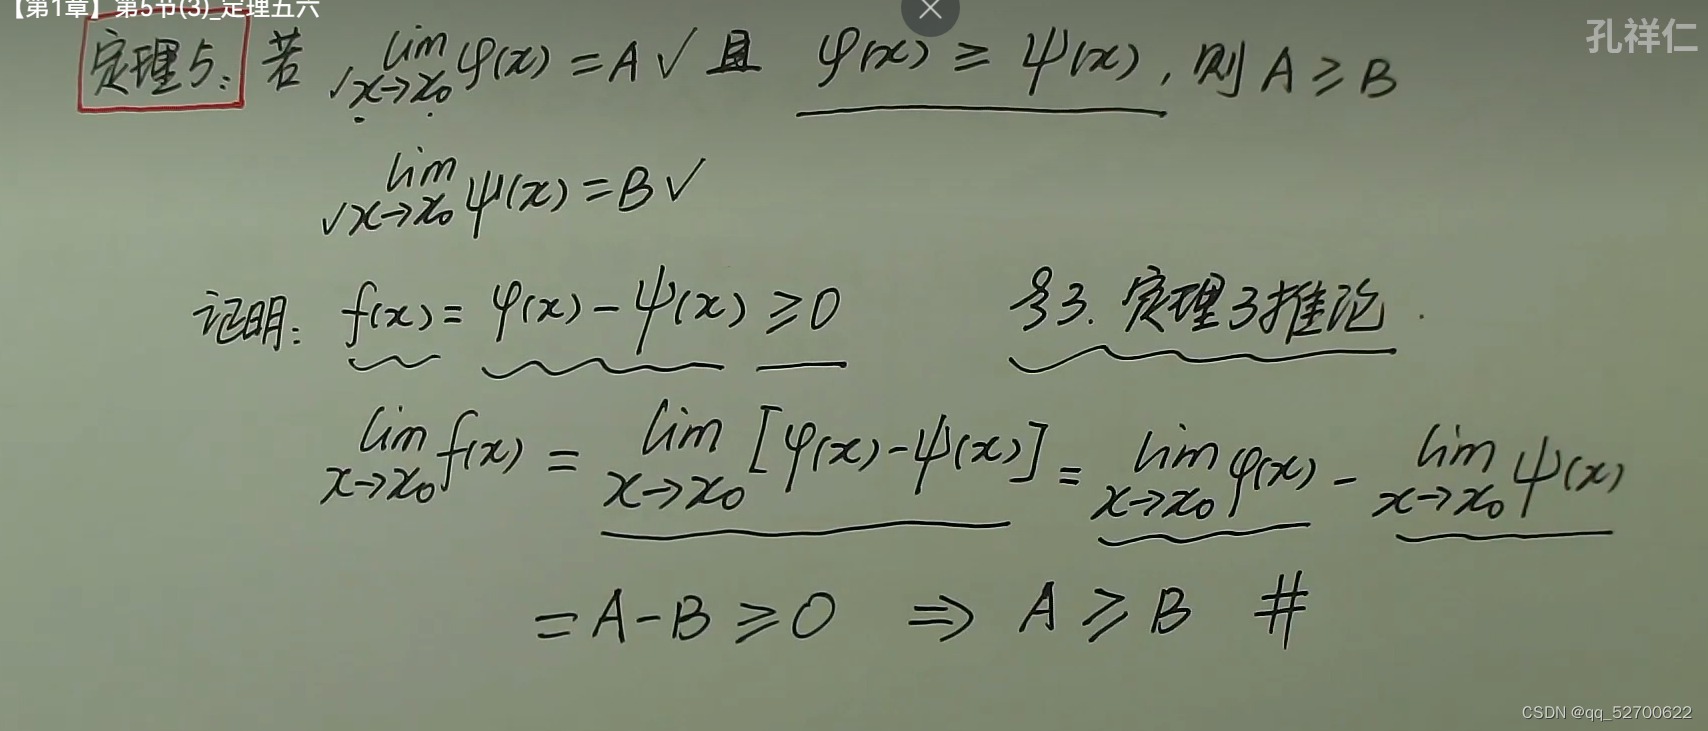 【第1章】第5节(3)_定理五六
孔祥仁
定理5: 若 lim x→x₀ φ(x) = A √ 且 φ(x) ≥ ψ(x), 则 A ≥ B
lim x→x₀ ψ(x) = B √
证明: f(x) = φ(x) - ψ(x) ≥ 0 §3. 定理3推论.
lim x→x₀ f(x) = lim x→x₀ [φ(x) - ψ(x)] = lim x→x₀ φ(x) - lim x→x₀ ψ(x)
= A - B ≥ 0 ⇒ A ≥ B #
CSDN @qq_52700622